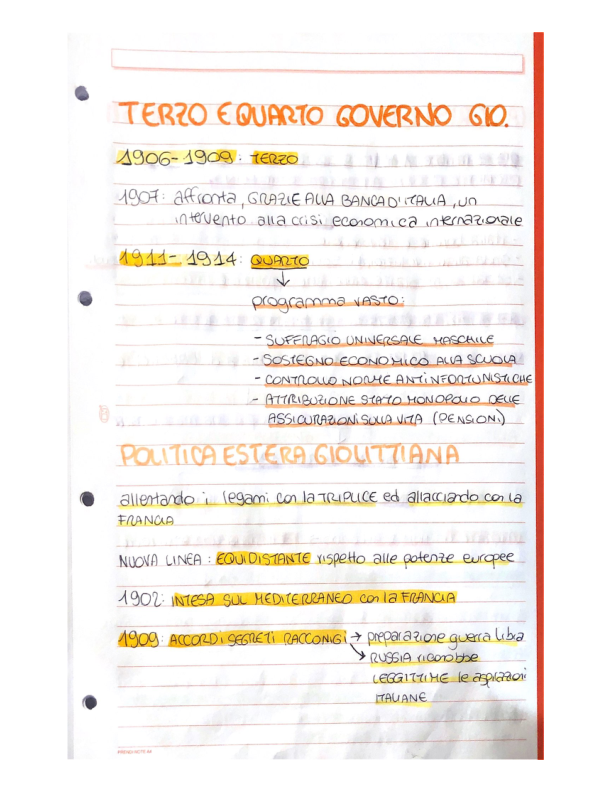 TERZO E QUARTO GOVERNO GIO.
1906-1909: TERZO
1907: affronta, GRAZIE ALLA BANCA D'ITALIA, un
intervento alla crisi economica internazionale
1911- 1914: QUARTO
↓
programma VASTO:
- SUFFRAGIO UNIVERSALE MASCHILE
- SOSTEGNO ECONOMICO ALLA SCUOLA
- CONTROLLO NORME ANTINFORTUNISTICHE
- ATTRIBUZIONE STATO MONOPOLIO DELLE
ASSICURAZIONI SULLA VITA (PENSIONI)
POLITICA ESTERA GIOLITTIANA
allentando i legami con la TRIPLICE ed allacciando con la
FRANCIA
NUOVA LINEA: EQUIDISTANTE rispetto alle potenze europee
1902: INTESA SUL MEDITERRANEO con la FRANCIA
1909: ACCORDI SEGRETI RACCONIGI → preparazione guerra libia
↘ RUSSIA riconobbe
LEGGITTIME le aspirazioni
ITALIANE